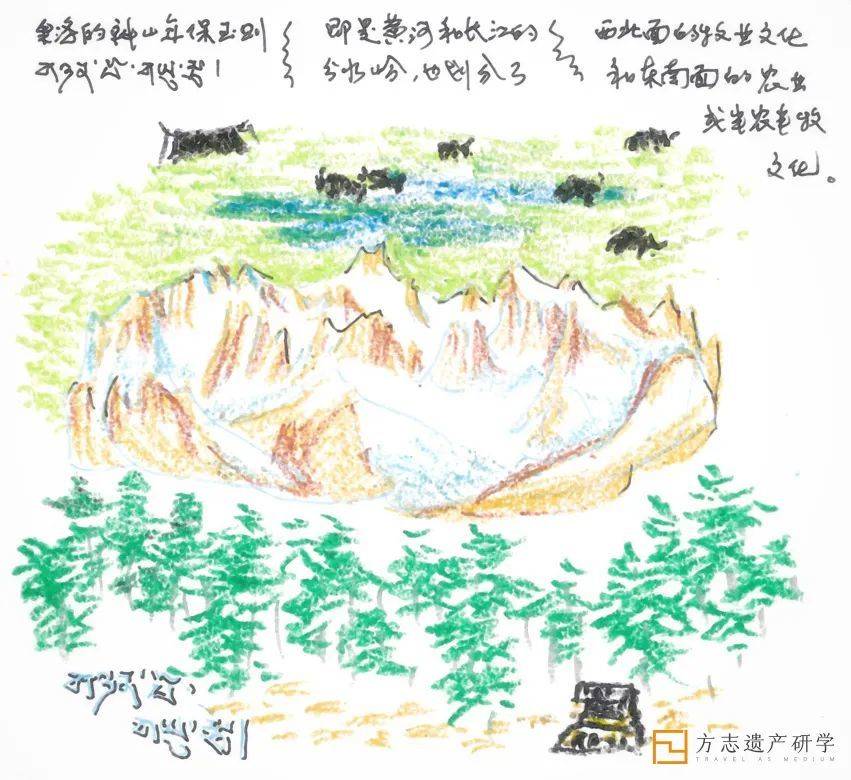 果洛的神山年保玉则
即是黄河和长江的
分水岭,也划分了
西北面的牧业文化
和东南面的农业
或半农半牧
文化。
方志遗产研学
TRAVEL AS MEDIUM